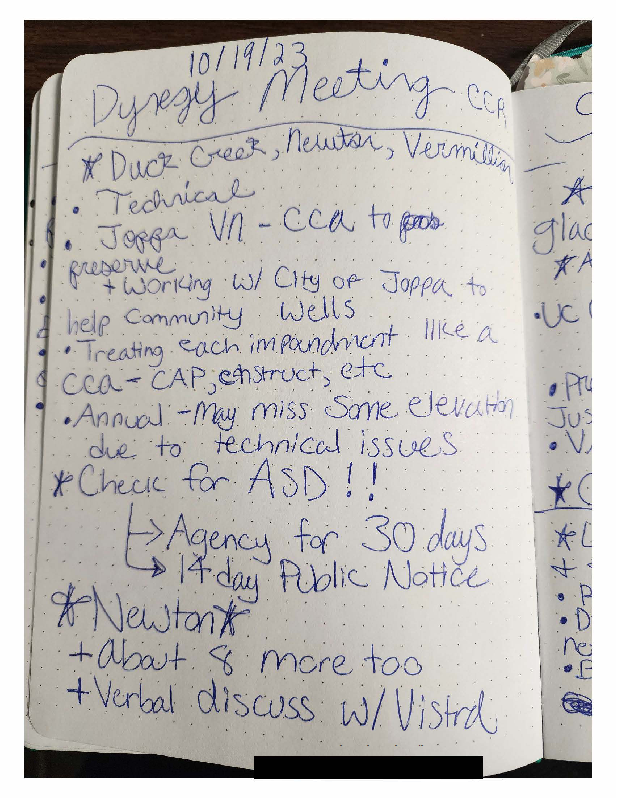 10/19/23
Dynegy Meeting CCR
* Duck Creek, Newton, Vermillion
• Technical
• Joppa VN - CCA to
preserve
+ Working w/ City of Joppa to
help Community Wells
• Treating each impoundment like a
CCA - CAP, construct, etc
• Annual - May miss some elevation
due to technical issues
* Check for ASD!!
→ Agency for 30 days
→ 14 day Public Notice
* Newton *
+ About 8 more too
+ Verbal discuss w/ Vistra
glac
* A
• UC
Jus